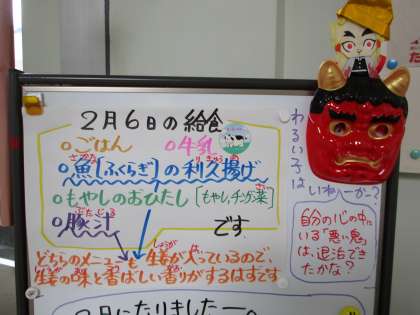 2月6日の給食
○ごはん ○牛乳
○魚[ふくらぎ]の利久揚げ
○もやしのおひたし[もやし、チンゲン菜]
○豚汁 です
どちらのメニューも生姜が入っているので、
生姜の味と香ばしい香りがするはずです
2月になりましたー。
わるい子は
いねーかー?
自分の心の中に
いる「悪い鬼」
は、退治でき
たかな?